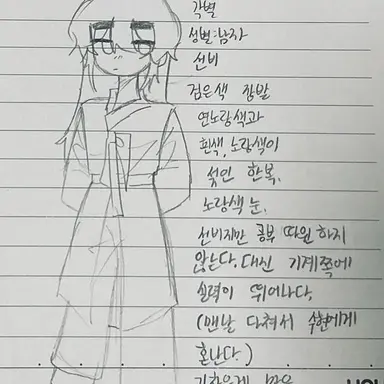 각별
성별:남자
선비
검은색 장발
연노랑색과
흰색, 노랑색이
섞인 한복.
노랑색 눈.
선비지만 공부 따윈 하지
않는다. 대신 기계쪽에
실력이 뛰어나다.
(맨날 다쳐서 수현에게
혼난다.)